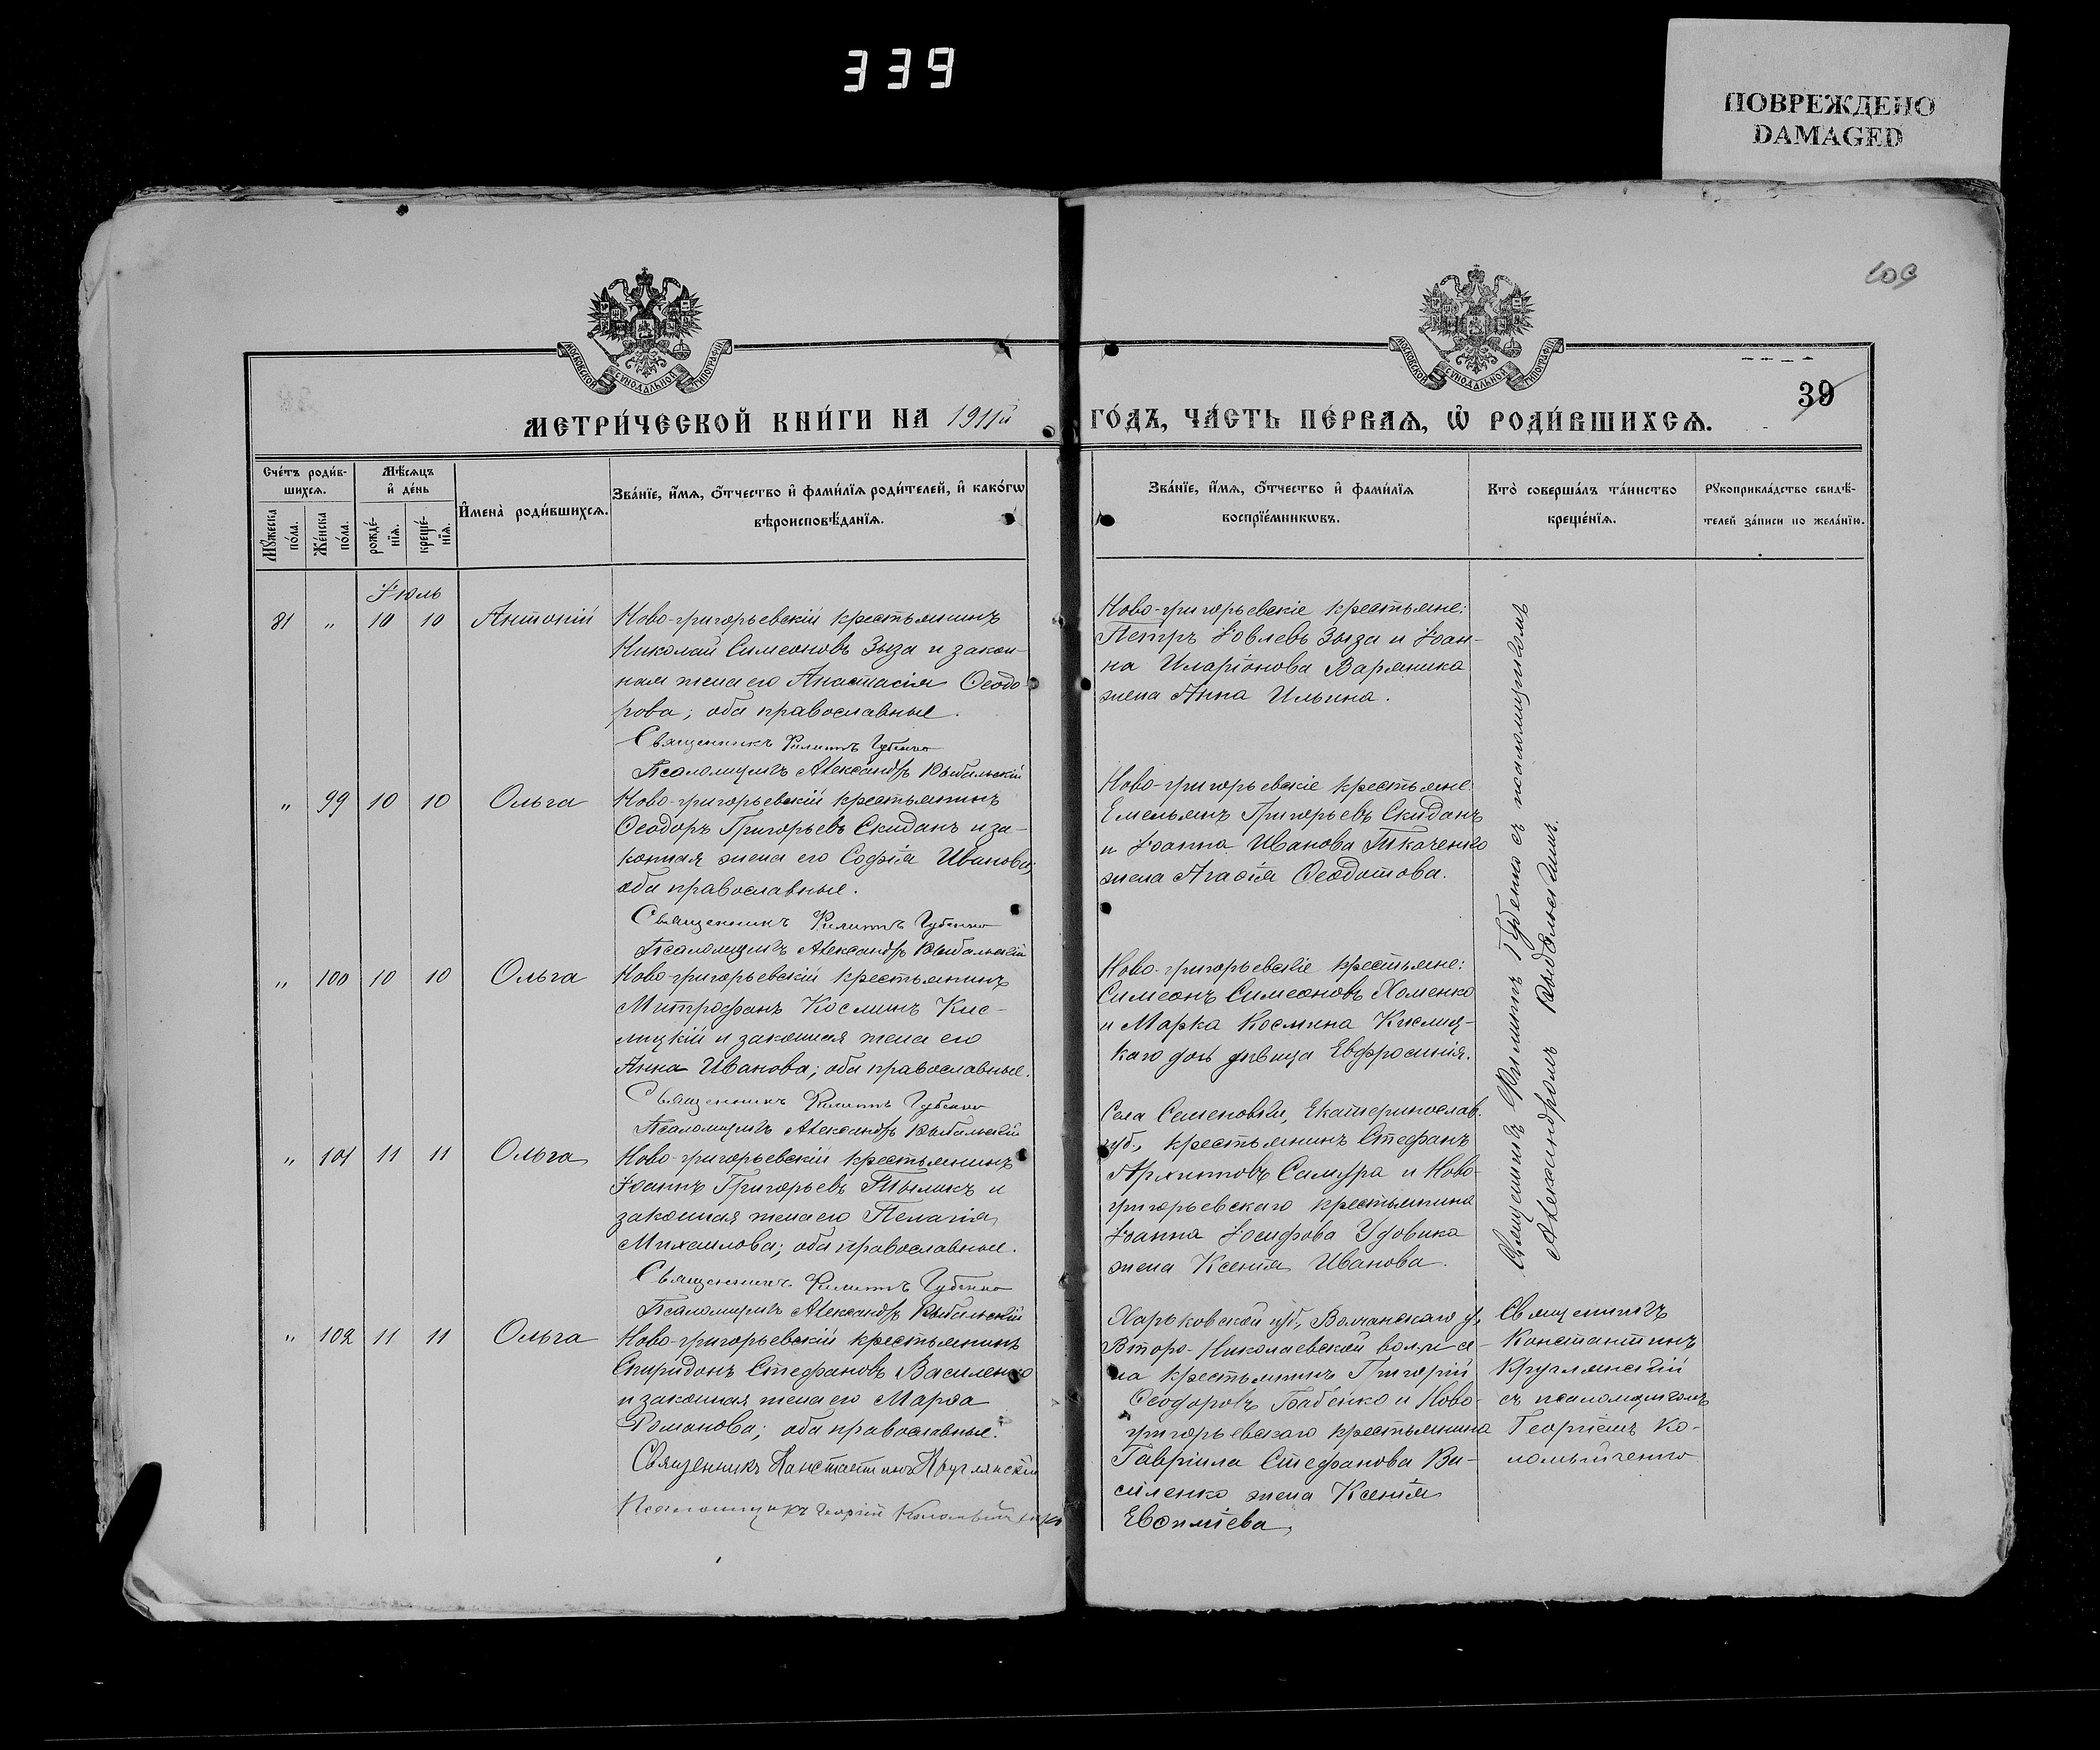 339
ПОВРЕЖДЕНО
DAMAGED
109
39
МОСКОВСКОЙ СѴНОДАЛЬНОЙ ТИПОГРАФІИ
МОСКОВСКОЙ СѴНОДАЛЬНОЙ ТИПОГРАФІИ
МЕТРИ́ЧЕСКОЙ КНИ́ГИ НА 1911й ГО́ДЪ, ЧА́СТЬ ПЕ́РВАѦ, Ѡ҆ РОДИ́ВШИХСѦ.
Сче́тъ роди́в-
шихсѧ.
Мꙋ́жеска по́ла.
Же́нска по́ла.
Мѣ́сѧцъ
и҆ де́нь
рожде́-
нїѧ.
креще́-
нїѧ.
И҆мена̀ роди́вшихсѧ.
Зва́нїе, и҆́мѧ, ѻ҆́тчество и҆ фами́лїѧ роди́телей, и҆ како́гѡ
вѣроисповѣ́данїѧ.
Зва́нїе, и҆́мѧ, ѻ҆́тчество и҆ фами́лїѧ
воспрїе́мникѡвъ.
Кто̀ соверша́лъ та́инство
креще́нїѧ.
Рꙋкоприкла́дство свидѣ́-
телей за́писи по жела́нїю.
Іюль
81 " 10 10 Антоній
Ново-григорьевскій крестьянинъ
Николай Симеоновъ Зыза и закон-
ная жена его Анастасія Ѳеодо-
рова; оба православные.
Священникъ Филиппъ Губенко
Псаломщикъ Александръ Выбальскій
Ново-григорьевскіе крестьяне:
Петръ Іовлевъ Зыза и Іоан-
на Иларіонова Варяника
жена Анна Ильина.
" 99 10 10 Ольга
Ново-григорьевскій крестьянинъ
Ѳеодоръ Григорьевъ Скиданъ и за-
конная жена его Софія Иванова;
оба православные.
Священникъ Филиппъ Губенко
Псаломщикъ Александръ Выбальскій
Ново-григорьевскіе крестьяне
Емельянъ Григорьевъ Скиданъ
и Іоанна Иванова Ткаченко
жена Агаѳія Ѳеодотова.
" 100 10 10 Ольга
Ново-григорьевскій крестьянинъ
Митрофанъ Косминъ Кис-
лицкій и законная жена его
Анна Иванова; оба православные.
Священникъ Филиппъ Губенко
Псаломщикъ Александръ Выбальскій
Ново-григорьевскіе крестьяне:
Симеонъ Симеоновъ Хоменко
и Марка Космина Кислиц-
каго дочь дѣвица Евфросинія.
" 101 11 11 Ольга
Ново-григорьевскій крестьянинъ
Іоаннъ Григорьевъ и
законная жена его Пелагія
Михаилова; оба православные.
Священникъ Филиппъ Губенко
Псаломщикъ Александръ Выбальскій
Села Семеновки, Екатеринослав.
губ., крестьянинъ Стефанъ
Архиповъ Самура и Ново-
григорьевскаго крестьянина
Іоанна Іосифова Удовика
жена Ксенія Иванова.
Священникъ Филиппъ Губенко съ псаломщикомъ
Александромъ Выбальскимъ.
" 102 11 11 Ольга
Ново-григорьевскій крестьянинъ
Спиридонъ Стефановъ Василенко
и законная жена его Марѳа
Романова; оба православные.
Священникъ Константинъ Круглянскій
Псаломщикъ Георгій Коломыйченко
Харьковской губ., Волчанскаго у.,
Второ-Николаевской вол. и се-
ла крестьянинъ Григорій
Ѳеодоровъ Бабенко и Ново-
григорьевскаго крестьянина
Гавріила Стефанова Ва-
силенко жена Ксенія
Евѳиміева.
Священникъ
Константинъ
Круглянскій
съ псаломщикомъ
Георгіемъ Ко-
ломыйченко